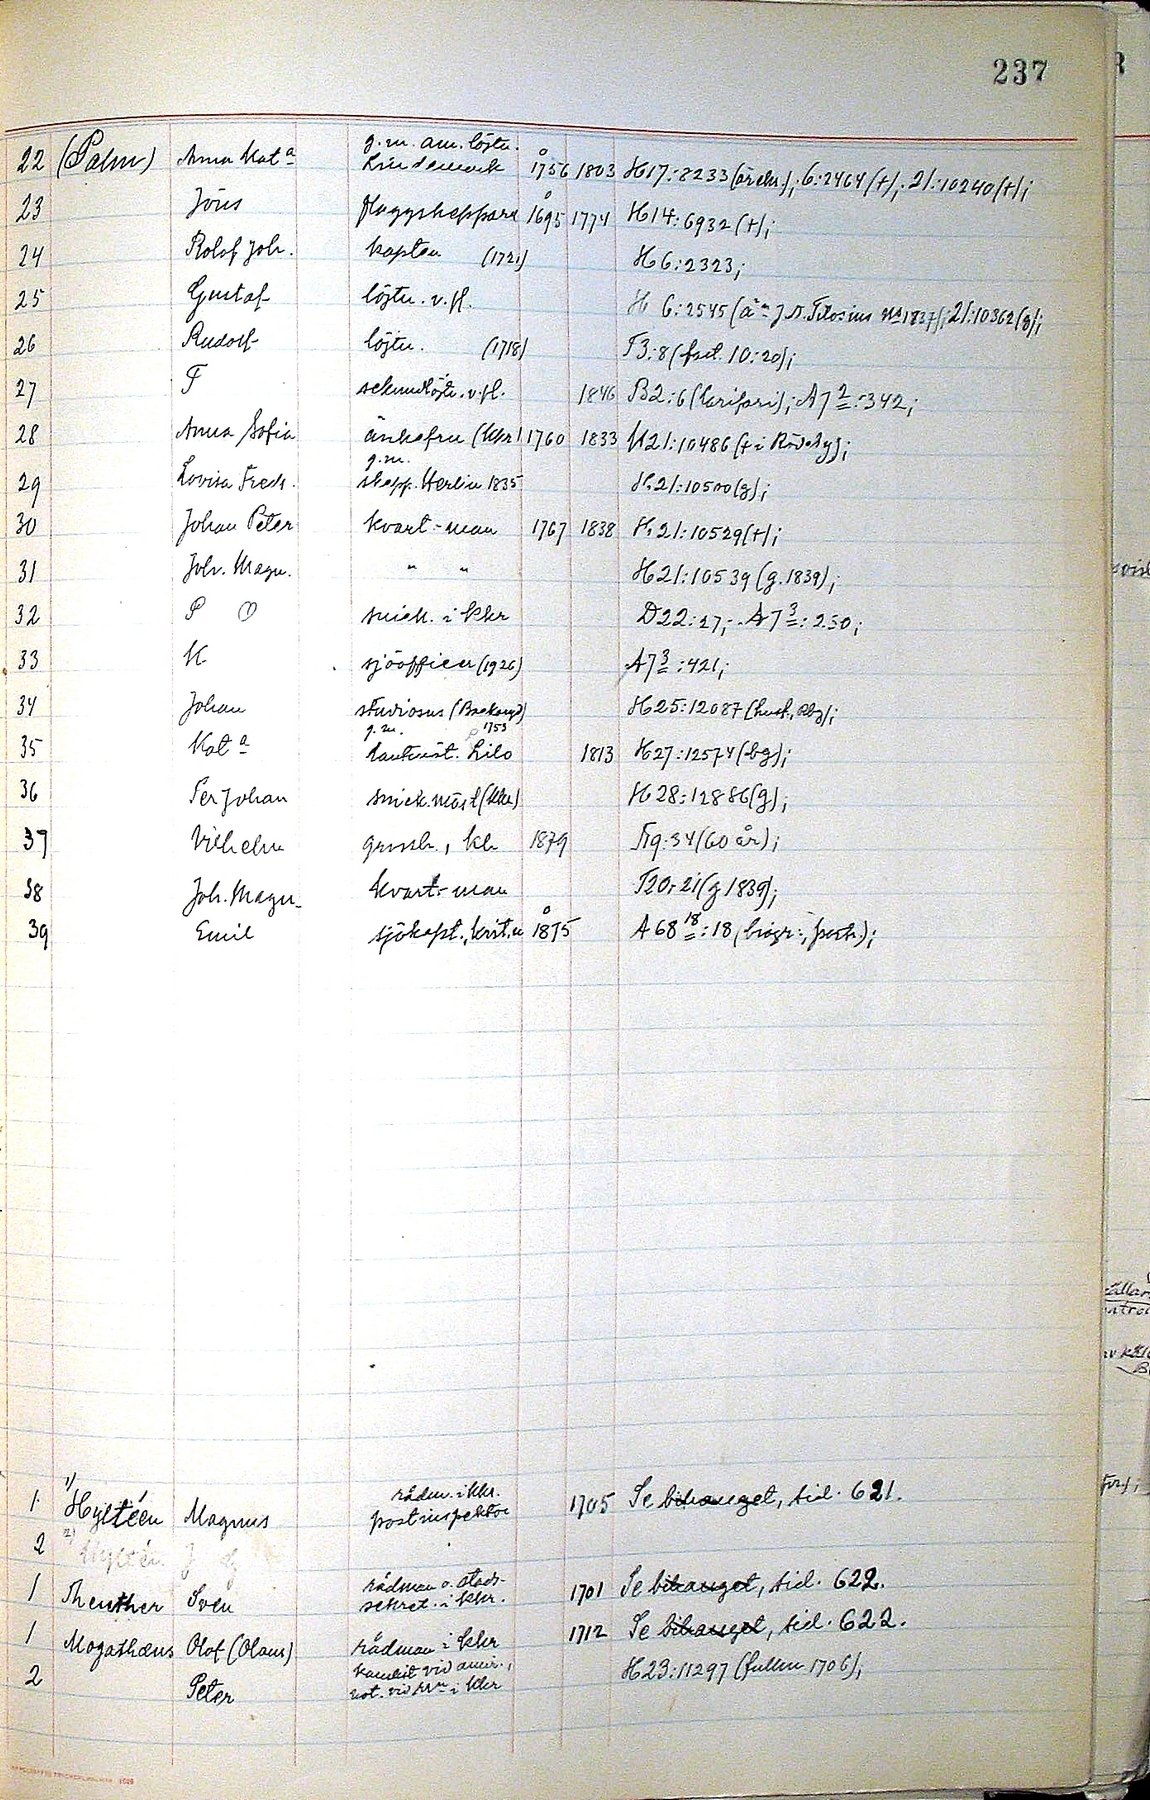 237
g.m. am. löjtn.
22 (Palm) Anna Kat a 1756 1803 H17:8233 ; 6:2464 (+); 21:10240 (+);
23 Jöns flaggskeppare 1695 1774 H14:6932 (+);
24 Rolof Joh. kapten (1721) H6:2323;
25 Gustaf löjtn. v. fl. H 6:2545 ; 21:10362 (g);
26 Rudolf löjtn. (1718) T3:8 (fact. 10:20);
27 F sekundlöjtn. v. fl. 1846 B2:6 ; A7 2:342;
28 Anna Sofia änkefru (kkr) 1760 1833 H21:10486 (+ i Rödeby);
g.m.
29 Lovisa Fredr. skepp. Herlin 1835 H21:10500 (g);
30 Johan Peter kvart-man 1767 1838 H21:10529 (+);
31 Joh. Magn. " " H21:10539 (g. 1839);
32 P O snick. i kkr D22:27; A7 3:250;
33 K sjöofficer (1926) A7 3:421;
34 Johan studiosus (Backaryd) H25:12087
g.m. 1753
35 Kat a Lilo 1813 H27:12574 (bg);
36 Per Johan snick.mäst (kkr) H28:12886 (g);
37 Vilhelm grossh., kh 1879 T19:34 (60 år);
38 Joh. Magn. kvart-man T20:21 (g 1839);
39 Emil sjökapt., 1875 A68 18:18, biogr:, portr.);
rådm. i kkr.
1. 1) Hyltéen Magnus postinspektor 1705 Se bihanget, sid. 621.
2 2) Hyltén J
rådman o. stads-
1 Theuther Sven sekret. i kkr. 1701 Se bihanget, sid. 622.
1 Magathæus Olof (Olaus) rådman i kkr 1712 Se bihanget, sid. 622.
kamrer vid amir.,
2 Peter i kkr H23:11297 (fullm 1706);